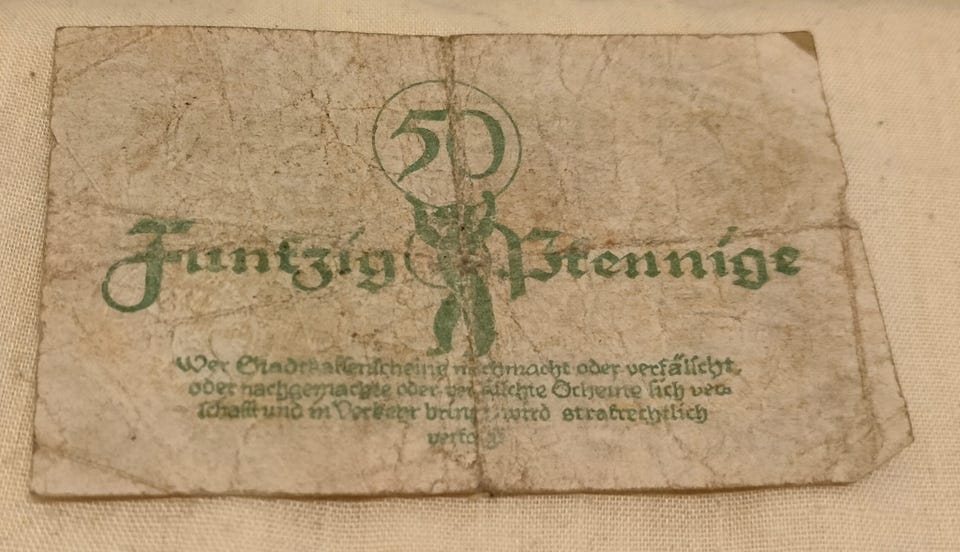 50
Funfzig Pfennige
Wer Stadtkassenscheine nachmacht oder verfälscht,
oder nachgemachte oder verfälschte Scheine sich ver=
schafft und in Verkehr bringt, wird strafrechtlich
verfolgt